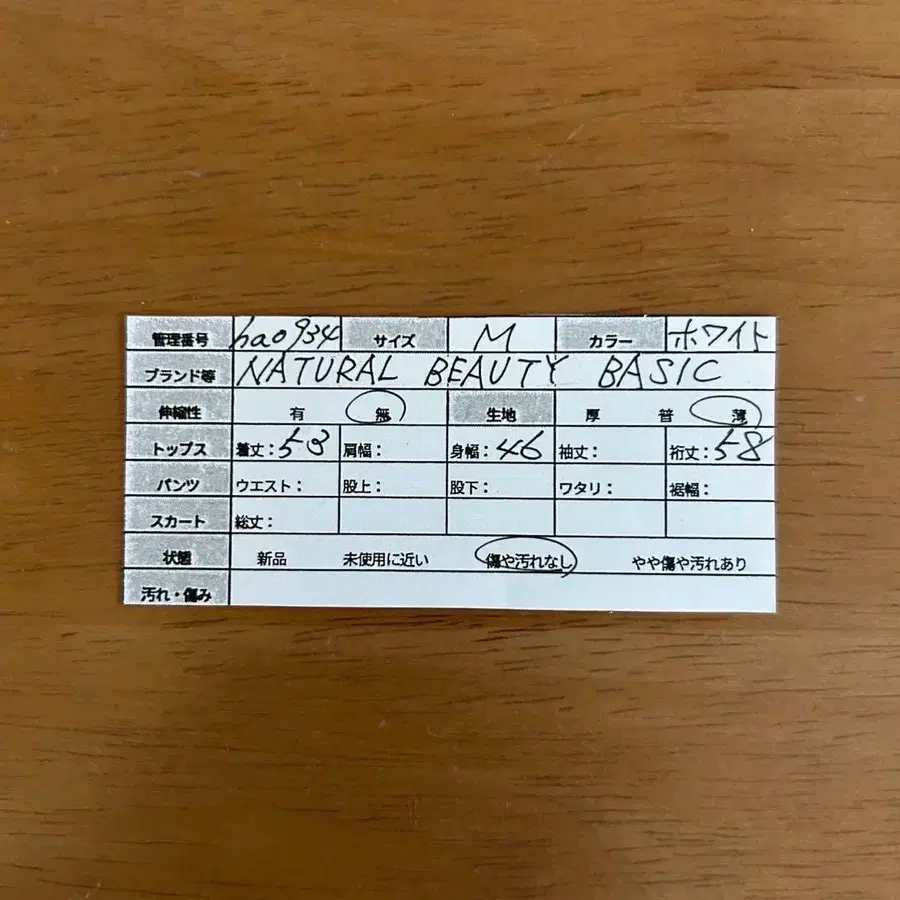 管理番号 hao934 サイズ M カラー ホワイト
ブランド等 NATURAL BEAUTY BASIC
伸縮性 有 無 生地 厚 普 薄
トップス 着丈:53 肩幅: 身幅:46 袖丈: 裄丈:58
パンツ ウエスト: 股上: 股下: ワタリ: 裾幅:
スカート 総丈:
状態 新品 未使用に近い 傷や汚れなし やや傷や汚れあり
汚れ・傷み